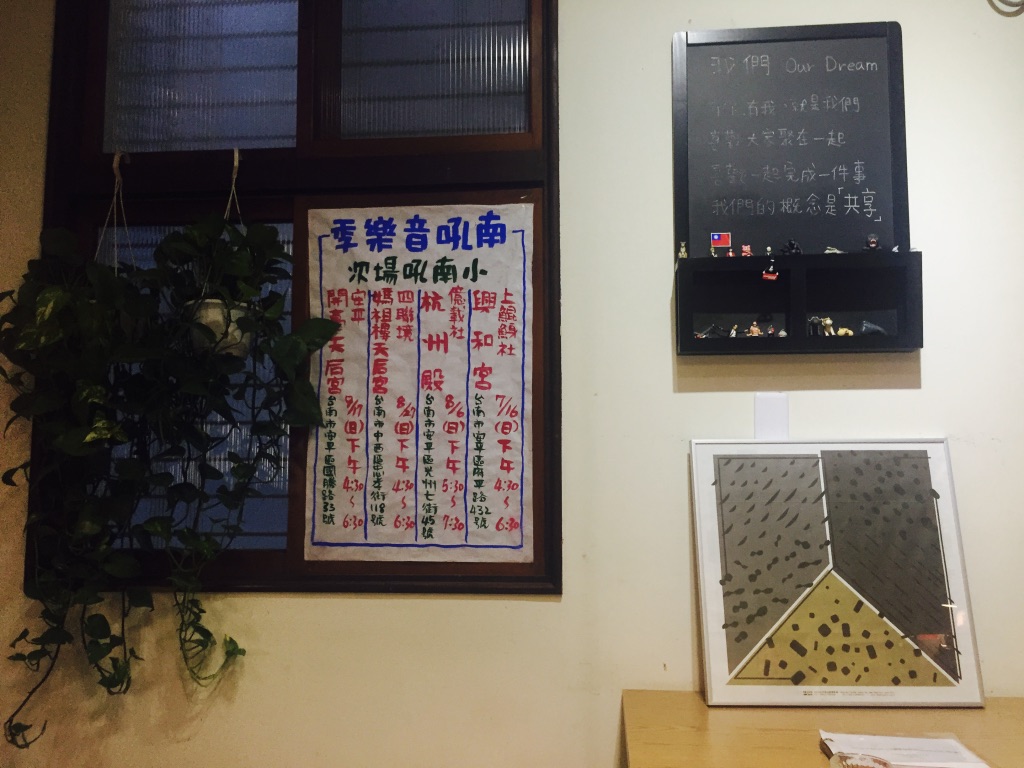 南吼音樂季
小南吼場次
上鯤鯓社
興和宮
7/16(日)下午4:30~6:30
台南市安平區府平路432號
億載社
杭州殿
8/6(日)下午5:30~7:30
台南市安平區光州七街45號
四聯境
媽祖樓天后宮
8/27(日)下午4:30~6:30
台南市中西區忠孝街118號
安平
開臺天后宮
9/17(日)下午4:30~6:30
台南市安平區國勝路33號
我們 Our Dream
有我,就是我們
喜歡大家聚在一起
喜歡一起完成一件事
我們的概念是「共享」